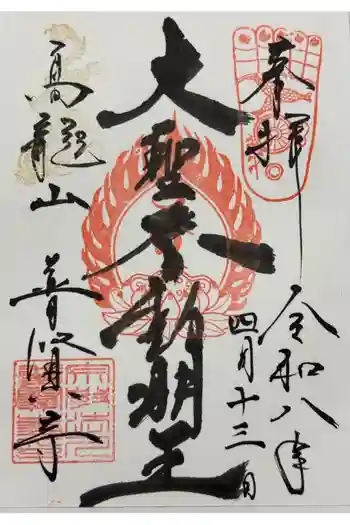 奉拝
令和八年
四月十三日
大聖不動明王
高龍山
普賢寺